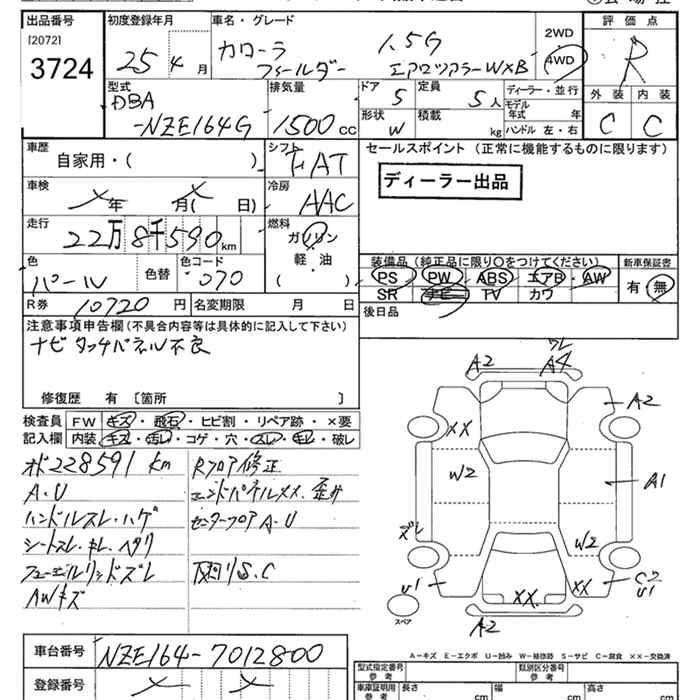 出品番号 初度登録年月 車名・グレード 評価点
[2072]
3724
25年4月
カローラ フィールダー 1.5G エアロツアラーW×B
2WD
4WD
R
型式 排気量 ドア 定員 ディーラー・並行 外装 内装
DBA
-NZE164G 1500cc 5 5人
モデル年式 年
形状 W 積載 kg ハンドル 左・右 C C
車歴 自家用・( ) シフト FAT
セールスポイント (正常に機能するものに限ります)
ディーラー出品
車検 メ年 メ月( 日) 冷房 AAC
走行 22万8千590km 燃料 ガソリン
軽・油
( )
色 パール 色替 色コード 070
装備品 (純正品に限り○をつけてください) 新車保証書
PS・PW・ABS・エアB・AW 有・無
SR ナビ TV カワ
R券 10720円 名変期限 月 日
後日品
注意事項申告欄(不具合内容等は具体的に記入して下さい)
ナビ タッチパネル不良
修復歴 有 〔箇所 〕
検査員 FW キズ・飛石・ヒビ割・リペア跡・×要
記入欄 内装 キズ・汚レ・コゲ・穴・スレ・キレ・破レ
228591km Rフロア修正
A.U エンドパネルXX.歪
ハンドルスレ・ハゲ センターフロアA・U
シートスレ・キレ・ヘタリ
フューエルリッドズレ S.C
AWキズ
A2 ワレ A4
A2
XX
W2
A1
ズレ
W2
U1
XX
XX
C2
U1
A2
スペア
車台番号 NZE164-7012800
登録番号
A-キズ E-エクボ U-凹み W-補修跡 S-サビ C-腐食 XX-交換済
型式指定番号 参考 類別区分番号 参考
車庫証明用 参考 長さ cm 幅 cm 高さ cm